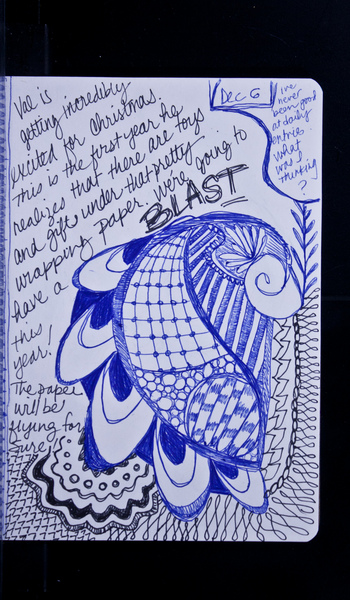 Val is
getting incredibly
excited for Christmas.
This is the first year he
realizes that there are toys
and gifts under that pretty
wrapping paper. We're going to
have a BLAST
this
year!
The paper
will be
flying for
sure!
Dec 6
I've
never
been good
at daily
entries.
What
was I
thinking
?